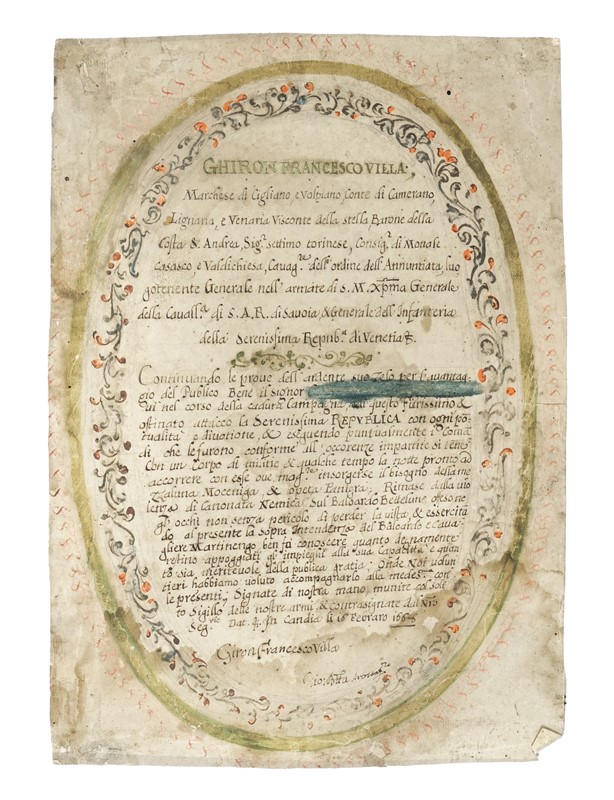 GHIRON FRANCESCO VILLA.,
Marchese di Cigliano, e Volpiano, Conte di Camerano
Lignana, e Venaria Visconte della stella Barone della
Costa S. Andrea, Sigʳ. settimo torinese, Consigʳ. di Monale
Casasco, e Valdichiesa, Cavagʳᵉ dell'ordine dell'Annuntiata, luo
gotenente Generale nell'armate di S. M. Xp̄ma Generale
della Cavallʳᵃ di S. A. R. di Savoia, & Generale dell'Infanteria
della Serenissima Repubᶜᵃ di Venetia &.
Continuando le prove dell'ardente suo Zelo per l'avantag-
gio del Publico Bene il signor
nel corso della caduta Campagna, questo furissimo &
ostinato attacco la Serenissima REPVBLICA con ogni pō-
tualità e divotione, & esequendo puntualmente i Comā
di che le furono conforme all'occorenze impartiti si tenne
Con un Corpo di militie & qualche tempo la notte pronto ad
accorrere con esse ove magʳᵉ insorgesse il bisogno della me
Zaluna Moceniga, & opera Panigra; Rimase dalla vio
lenza di Canonata Nemica sul Baloardo Bettelem offeso ne
gli occhi non senza pericolo di perder la vista, & essercitā
do al presente la sopra Intendenza del Baloardo e Cava-
gliere Martinengo ben fà conoscere quanto degnamente
restino appoggiati gl'impieghi alla sua Capacità e quan
to sia meritevole della publica gratia; Onde Noi volun
tieri habbiamo voluto accompagnarlo alla medesᵐᵃ con
le presenti, Signate di nostra mano, munite col soli
to Sigillo delle nostre armi, & contrasignate dal Nrō
Segʳⁱᵒ Dat. In Candia li 16 Febraro 1668
Giron Francesco Villa
Gio: Botta